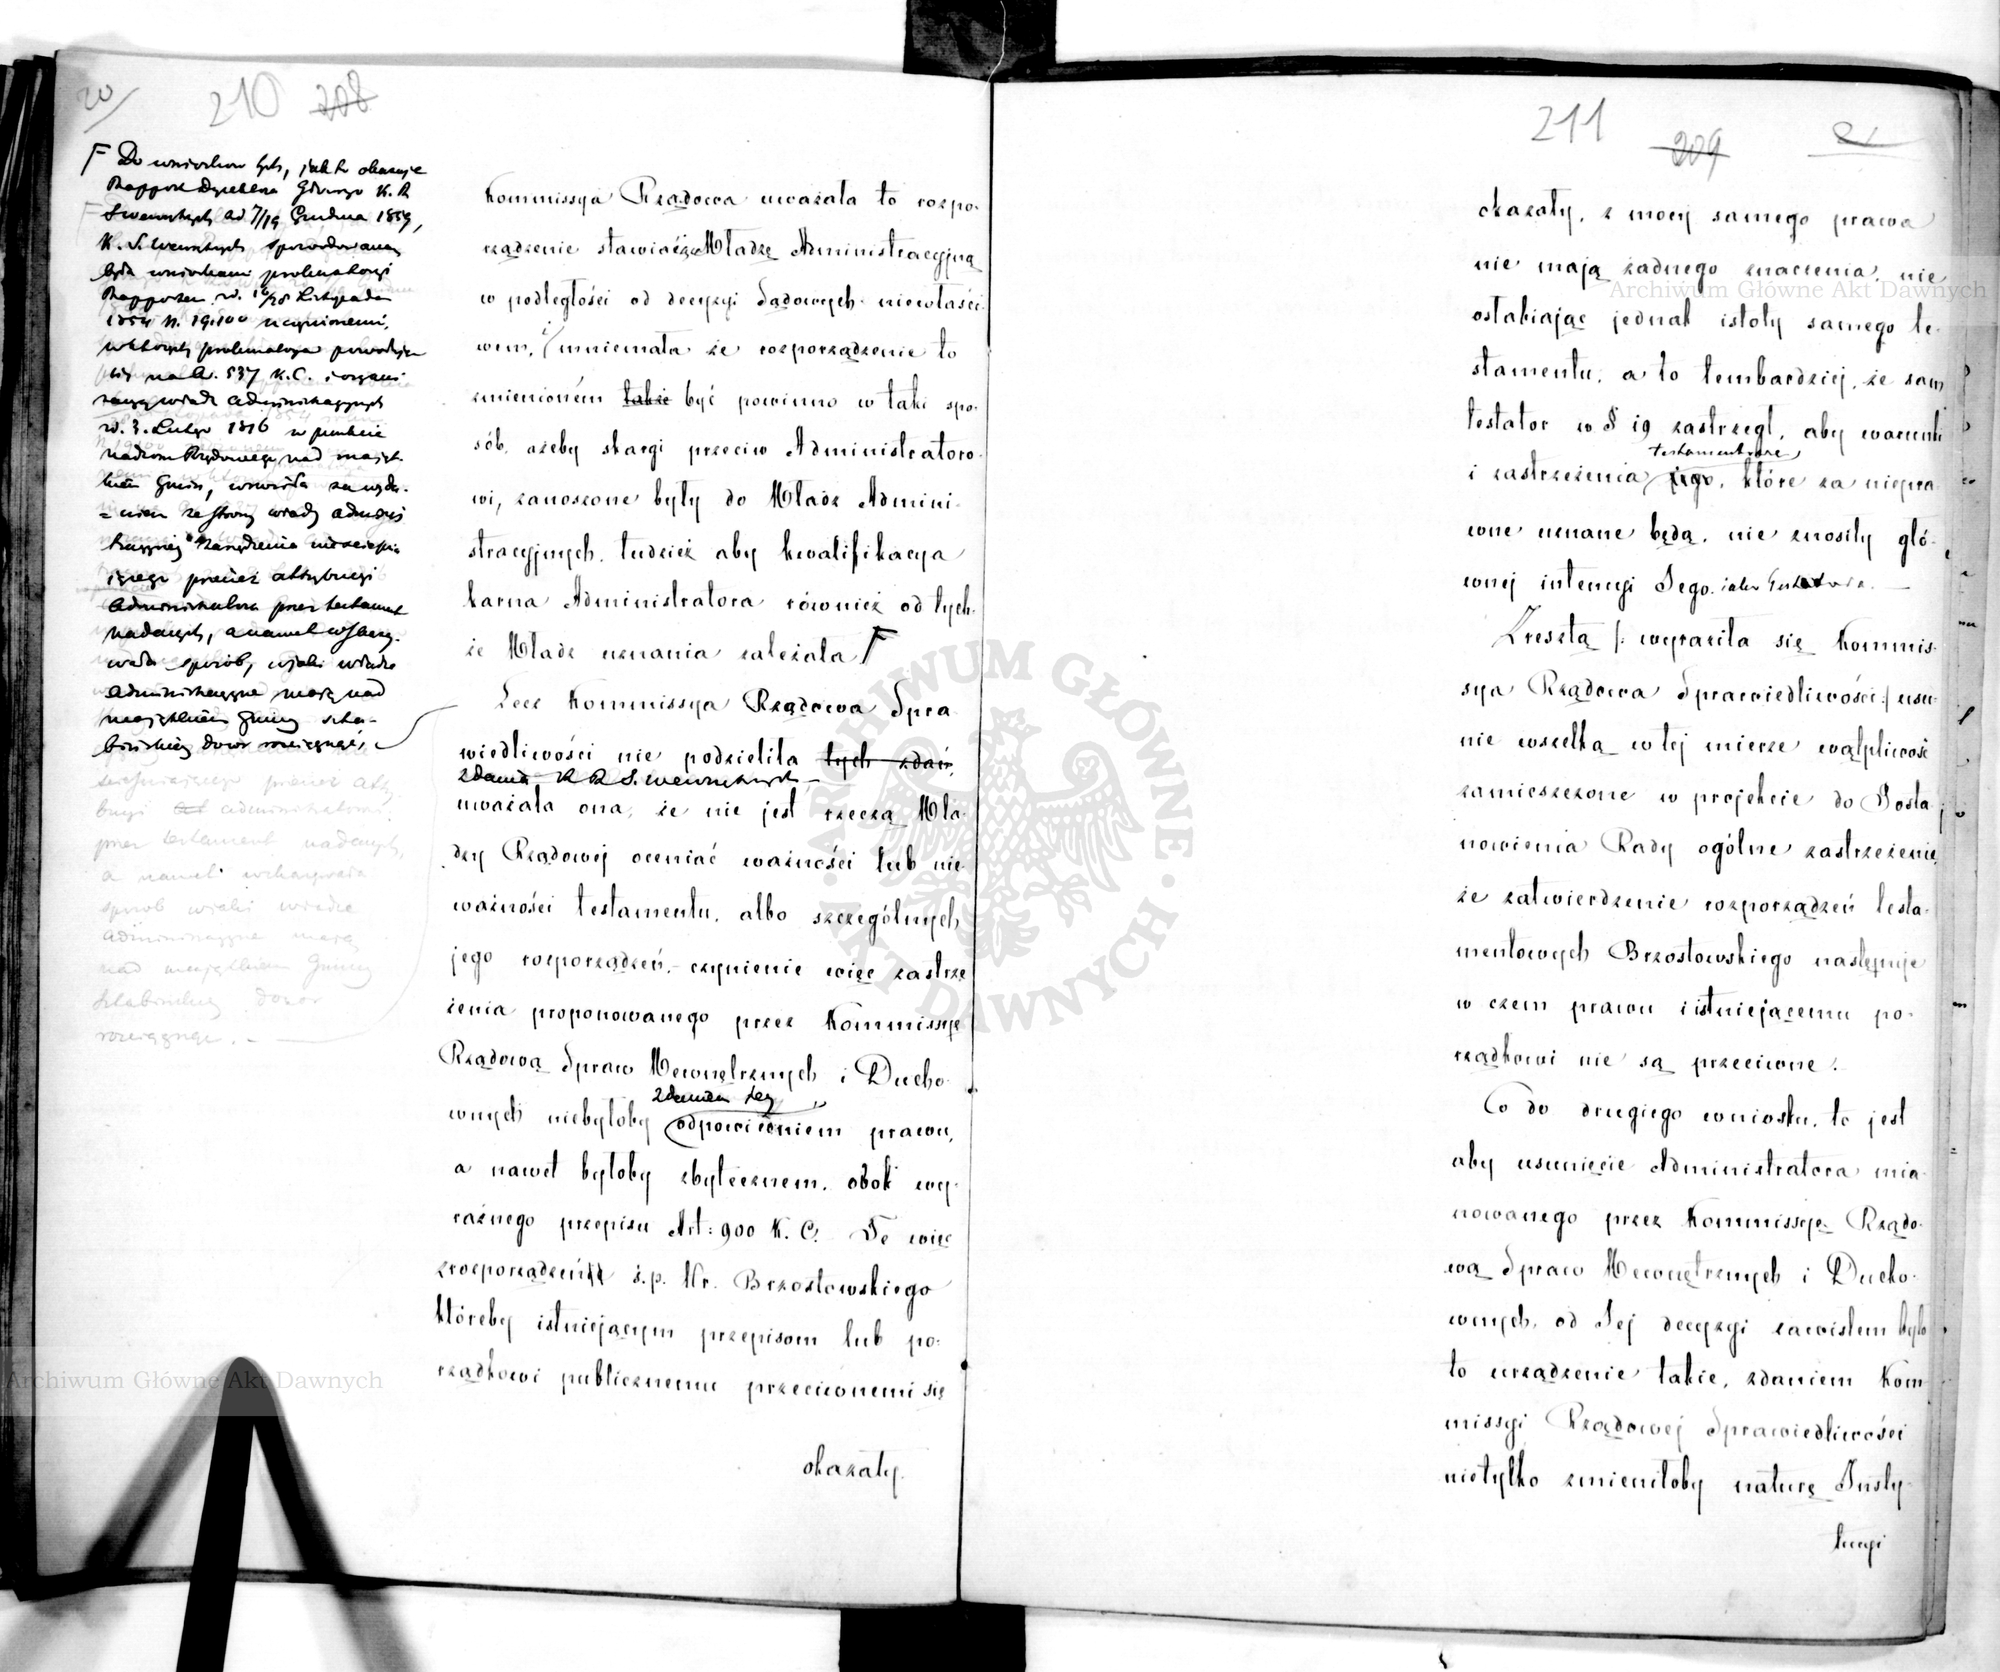 20/
210 208
F Do wniosków tych, jak to okazuje
Rapport Dyrektora Głównego K. R.
S. Wewnętrznych od 7/19 Grudnia 1854,
K. S. Wewnętrznych spowodowaną
była wnioskami prokuratoryi
Rapportem z d. 16/28 Listopada
1854 N. 19.100 uczynionemi,
w których prokuratorya powołując
się na A. 537 K.C. i organi
zacyą władz administracyjnych
z d. 3. Lutego 1816 w punkcie
nadzoru Rządowego nad mająt
kiem Gmin, wnosiła za wyda-
=niem ze strony władzy admini
stracyjnej zarządzenia nieście
jącego przecież attrybucyi
administratora przez testament
nadanych, a nawet wskazy-
wała sposób, w jaki władze
administracyjne mają nad
majątkiem Gminy szta-
bińskiej dozór rozciągnąć.
przecież atty
bucyi administratora
przez testament nadanych,
a nawet wskazywała
sposób w jaki władze
administracyjne mają
nad majątkiem Gminy
Sztabińskiej dozór
rozciągnąć. –
Kommissya Rządowa uważała to rozpo-
rządzenie stawiające Władzę Administracyjną
w podległości od decyzyi Sądowych niewłaści-
wem, i mniemała że rozporządzenie to
zmienioném także być powinno w taki spo-
sób, ażeby skargi przeciw Administratoro-
wi, zanoszone były do Władz Admini-
stracyjnych, tudzież aby kwalifikacya
karna Administratora również od tych-
że Władz uznania zależała F
Lecz Kommissya Rządowa Spra
wiedliwości nie podzieliła tych zdań,
zdania K R S. Wewnętrznych –
uważała ona, że nie jest rzeczą Wła-
dzy Rządowej oceniać ważności lub nie
ważności testamentu, albo szczególnych
jego rozporządzeń, – czynienie więc zastrze
żenia proponowanego przez Kommissyę
Rządową Spraw Wewnętrznych i Ducho-
zdaniem Jej
wnych niebyłoby odpowiedniem prawu,
a nawet byłoby zbytecznem, obok wy-
raźnego przepisu Art: 900 K. C. Te więc
z rozporządzeń ś. p. Hr. Brzostowskiego
któreby istniejącym przepisom lub po-
rządkowi publicznemu przeciwnemi się
okazały.
211 209 21
okazały, z mocy samego prawa
nie mają żadnego znaczenia, nie
osłabiając jednak istoty samego te-
stamentu, a to tembardziej, że sam
testator w § 19 zastrzegł, aby warunki
testamentowe
i zastrzeżenia jego, które za niepra
wne uznane będą, nie znosiły głó-
wnej intencyi Jego. jako testatora. –
Zresztą /: wyraziła się Kommis-
sya Rządowa Sprawiedliwości :/ usu-
nie wszelką w tej mierze wątpliwość
zamieszczone w projekcie do Posta
nowienia Rady ogólne zastrzeżenie,
że zatwierdzenie rozporządzeń testa-
mentowych Brzostowskiego następuje
w czem prawu i istniejącemu po-
rządkowi nie są przeciwne. –
Co do drugiego wniosku, to jest
aby usunięcie Administratora mia-
nowanego przez Kommissyę Rządo-
wą Spraw Wewnętrznych i Ducho-
wnych, od Jej decyzyi zawisłem było
to urządzenie takie, zdaniem Kom
missyi Rządowej Sprawiedliwości
nietylko zmieniłoby naturę Insty-
tucyi
Archiwum Główne Akt Dawnych
Archiwum Główne Akt Dawnych
ARCHIWUM GŁÓWNE · AKT DAWNYCH ·